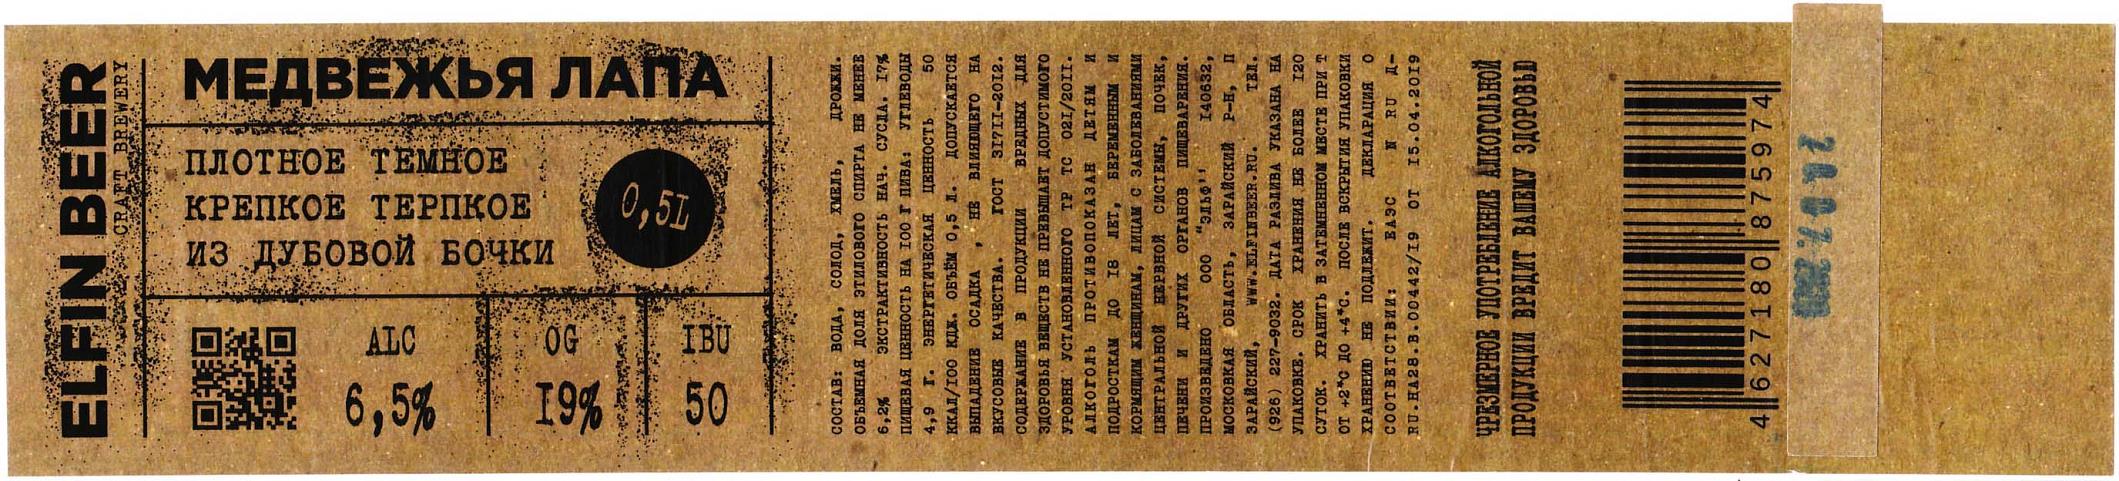 ELFIN BEER
CRAFT BREWERY
МЕДВЕЖЬЯ ЛАПА
ПЛОТНОЕ ТЕМНОЕ
КРЕПКОЕ ТЕРПКОЕ
ИЗ ДУБОВОЙ БОЧКИ
0,5L
ALC
6,5%
OG
19%
IBU
50
СОСТАВ: ВОДА, СОЛОД, ХМЕЛЬ, ДРОЖЖИ.
ОБЪЕМНАЯ ДОЛЯ ЭТИЛОВОГО СПИРТА НЕ МЕНЕЕ
6,2% ЭКСТРАКТИВНОСТЬ НАЧ. СУСЛА. 17%
ПИЩЕВАЯ ЦЕННОСТЬ НА 100 Г ПИВА: УГЛЕВОДЫ
4,9 Г. ЭНЕРГЕТИЧЕСКАЯ ЦЕННОСТЬ 50
ККАЛ/100 КДЖ. ОБЪЁМ 0,5 Л. ДОПУСКАЕТСЯ
ВЫПАДЕНИЕ ОСАДКА , НЕ ВЛИЯЮЩЕГО НА
ВКУСОВЫЕ КАЧЕСТВА. ГОСТ 31711-2012.
СОДЕРЖАНИЕ В ПРОДУКЦИИ ВРЕДНЫХ ДЛЯ
ЗДОРОВЬЯ ВЕЩЕСТВ НЕ ПРЕВЫШАЕТ ДОПУСТИМОГО
УРОВНЯ УСТАНОВЛЕННОГО ТР ТС 021/2011.
АЛКОГОЛЬ ПРОТИВОПОКАЗАН ДЕТЯМ И
ПОДРОСТКАМ ДО 18 ЛЕТ, БЕРЕМЕННЫМ И
КОРМЯЩИМ ЖЕНЩИНАМ, ЛИЦАМ С ЗАБОЛЕВАНИЯМИ
ЦЕНТРАЛЬНОЙ НЕРВНОЙ СИСТЕМЫ, ПОЧЕК,
ПЕЧЕНИ И ДРУГИХ ОРГАНОВ ПИЩЕВАРЕНИЯ.
ПРОИЗВЕДЕНО ООО "ЭЛЬФ'' 140632,
МОСКОВКАЯ ОБЛАСТЬ, ЗАРАЙСКИЙ Р-Н, П
ЗАРАЙСКИЙ, WWW.ELFINBEER.RU. ТЕЛ.
(926) 227-9032. ДАТА РАЗЛИВА УКАЗАНА НА
УПАКОВКЕ. СРОК ХРАНЕНИЯ НЕ БОЛЕЕ 120
СУТОК. ХРАНИТЬ В ЗАТЕМНЕННОМ МЕСТЕ ПРИ Т
ОТ +2°С ДО +4°С. ПОСЛЕ ВСКРЫТИЯ УПАКОВКИ
ХРАНЕНИЮ НЕ ПОДЛЕЖИТ. ДЕКЛАРАЦИЯ О
СООТВЕТСТВИИ: ЕАЭС N RU Д-
RU.НА28.В.00442/19 ОТ 15.04.2019
ЧРЕЗМЕРНОЕ УПОТРЕБЛЕНИЕ АЛКОГОЛЬНОЙ
ПРОДУКЦИИ ВРЕДИТ ВАШЕМУ ЗДОРОВЬЮ
4 627180 875974